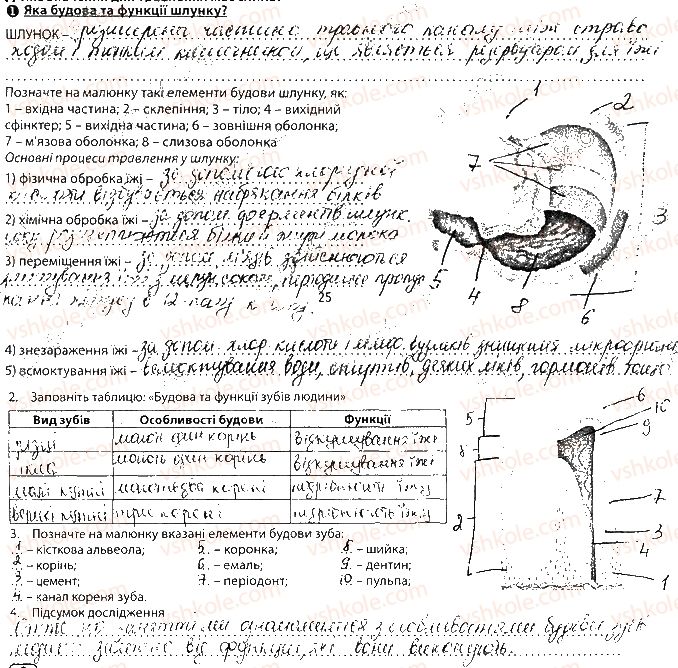 1 Яка будова та функції шлунку?
ШЛУНОК – розширена частина травного каналу між страво
ходом і тонким кишечником, що являється резервуаром для їжі
Позначте на малюнку такі елементи будови шлунку, як:
1 – вхідна частина; 2 – склепіння; 3 – тіло; 4 – вихідний
сфінктер; 5 – вихідна частина; 6 – зовнішня оболонка;
7 – м'язова оболонка; 8 – слизова оболонка
Основні процеси травлення у шлунку:
1) фізична обробка їжі – за допомогою хлоридної
к-ти відбувається набрякання білків
2) хімічна обробка їжі – за допом ферментів шлунк.
соку розщеплюються білки і жири молока
3) переміщення їжі – за допом м'язів здійснюється
їжі з шлун соком, періодичне
в 12-палу кишку
25
4) знезараження їжі – за допом хлор кислоти і лімфо вузликів знищення мікроорганізмів
5) всмоктування їжі – всмоктування води, спиртів, деяких ліків, гормонів тощо
1
2
3
4
5
6
7
8
2. Заповніть таблицю: «Будова та функції зубів людини»
Вид зубів Особливості будови Функції
різці мають один корінь відкушування їжі
ікла мають один корінь відкушування їжі
малі кутні мають два корені подрібнюють їжу
великі кутні три корені подрібнюють їжу
3. Позначте на малюнку вказані елементи будови зуба:
1 – кісткова альвеола; 5 – коронка; 8 – шийка;
2 – корінь; 6 – емаль; 9 – дентин;
3 – цемент; 7 – періодонт; 10 – пульпа;
4 – канал кореня зуба.
5
8
2
6
10
9
7
3
4
1
4. Підсумок дослідження
Отже на занятті ми ознайомилися з особливостями будови зубів
людини залежно від функцій, які вони виконують.
vshkole.com